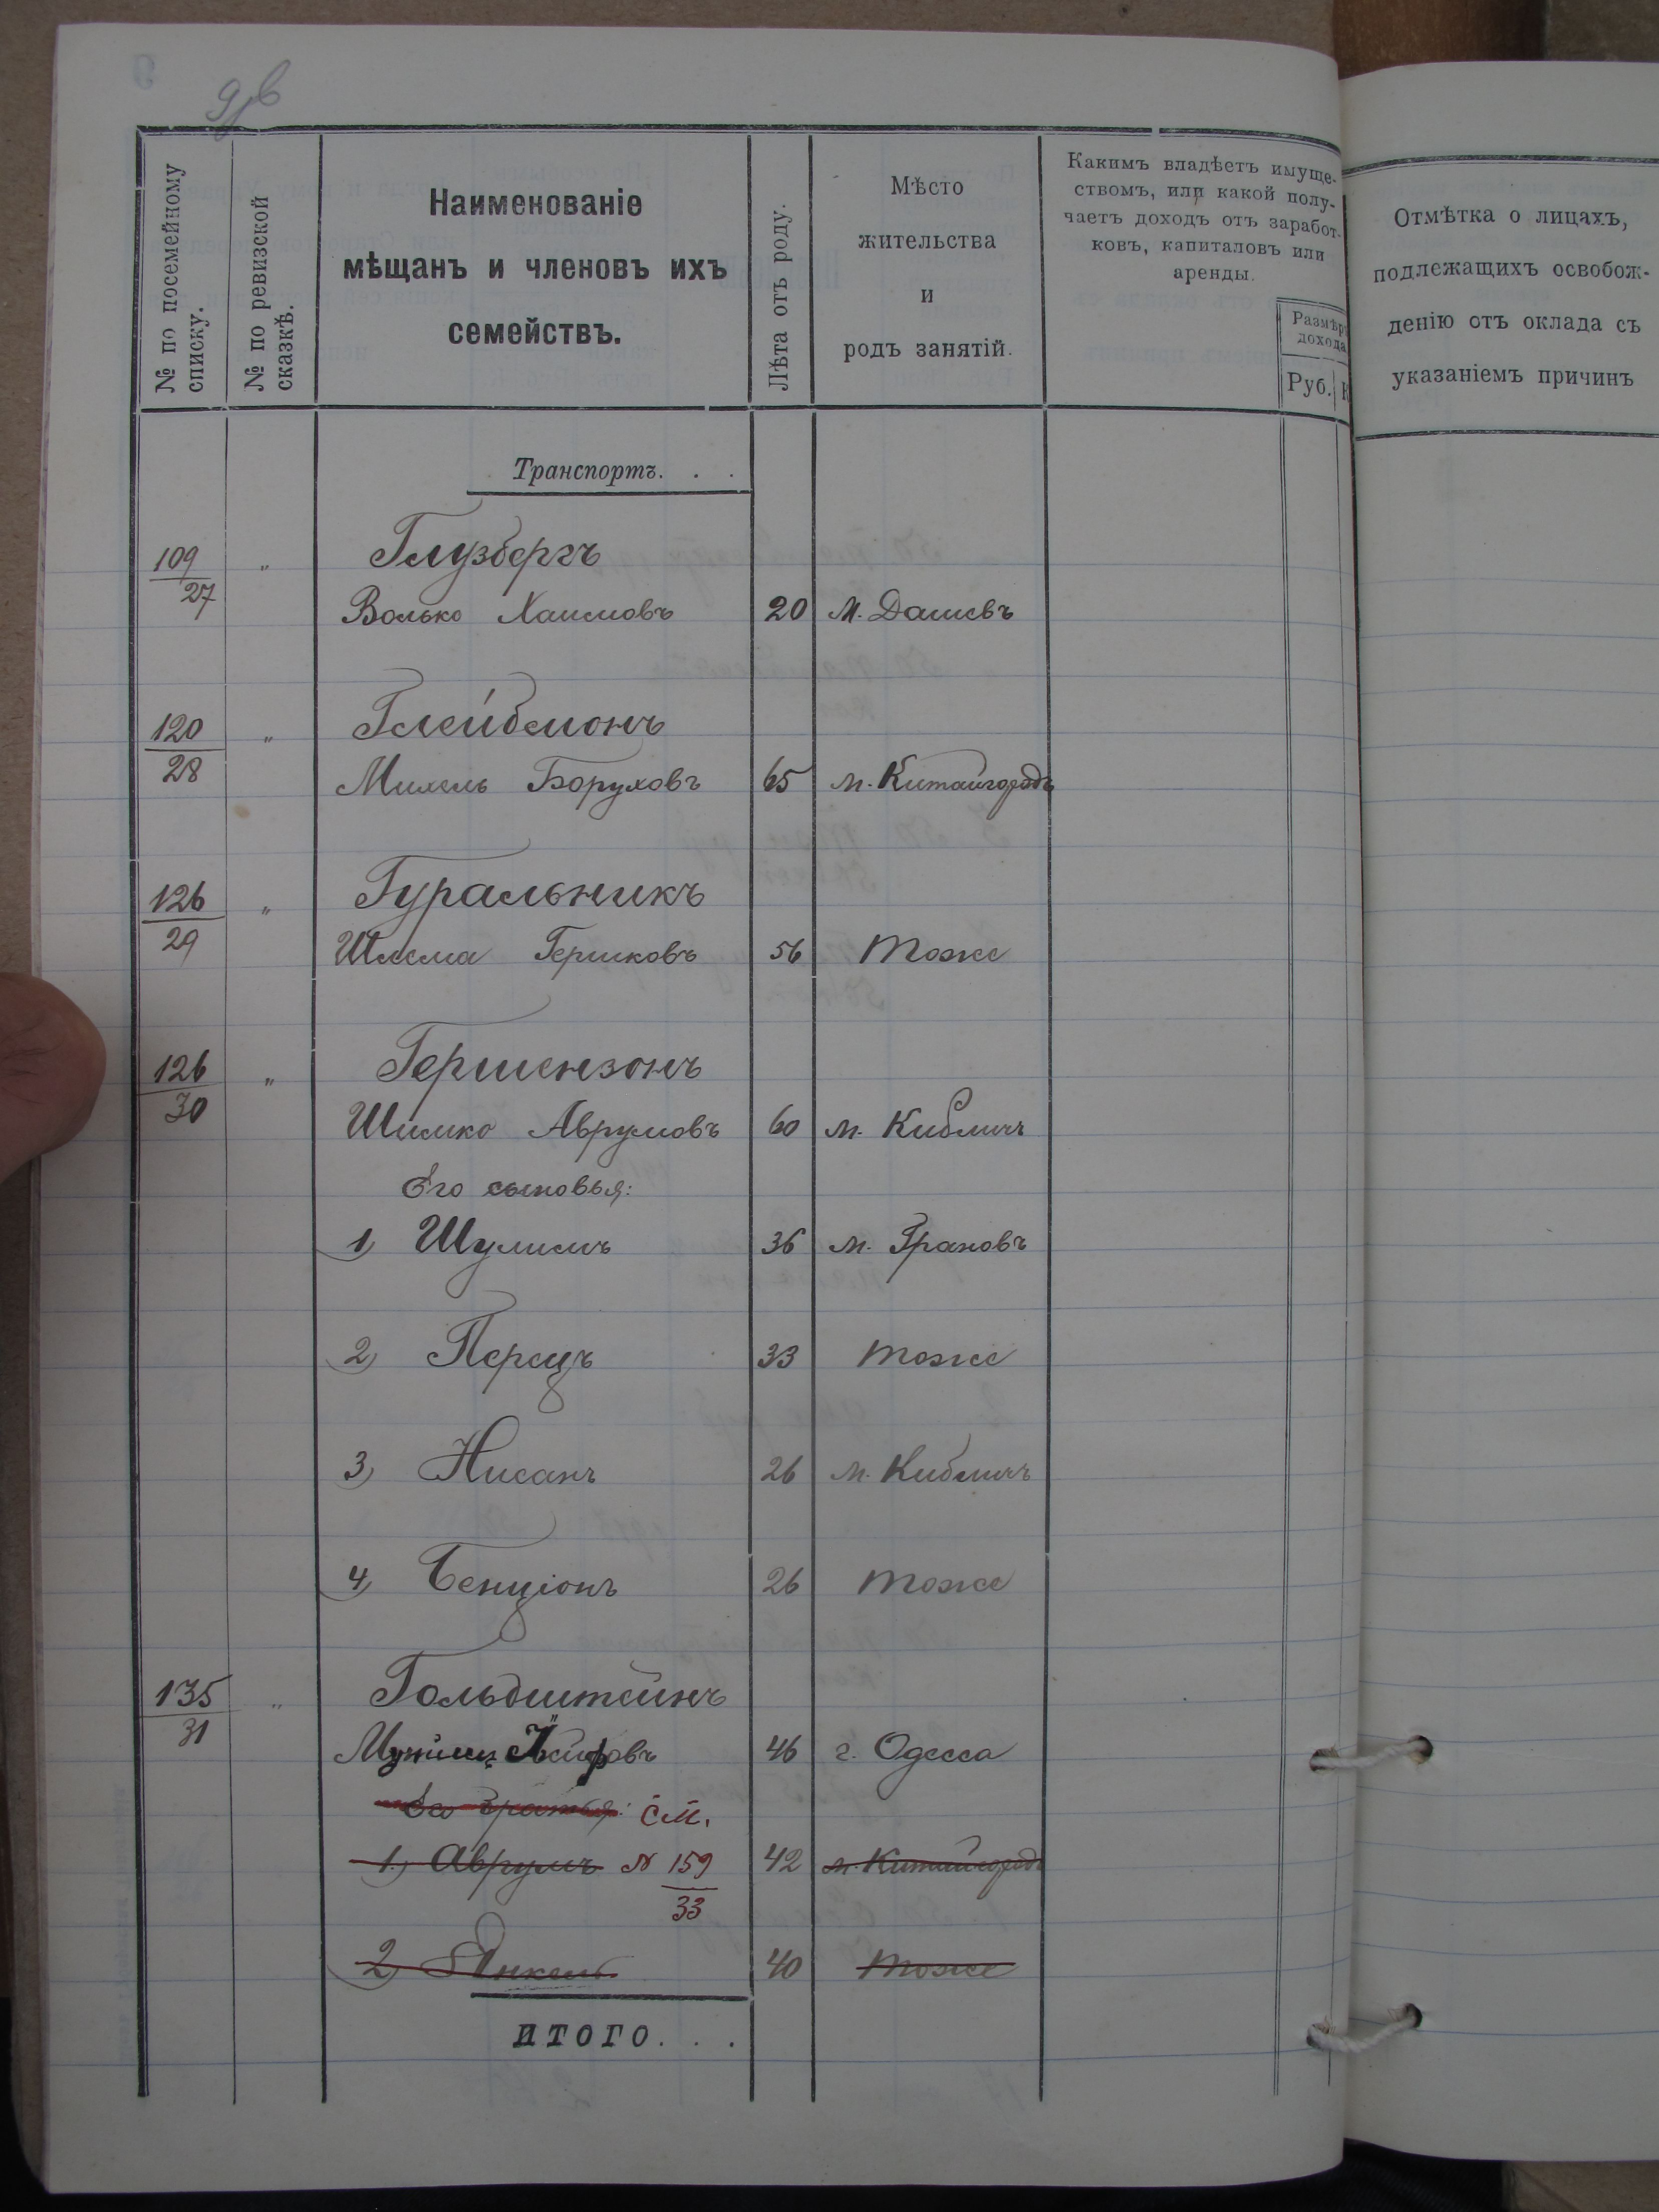 9/в
№ по посемейному
списку.
№ по ревизской
сказкѣ.
Наименованіе
мѣщанъ и членовъ ихъ
семействъ.
Лѣта отъ роду.
Мѣсто
жительства
и
родъ занятій.
Какимъ владѣетъ имуще-
ствомъ, или какой полу-
чаетъ доходъ отъ заработ-
ковъ, капиталовъ или
аренды.
Размѣръ
дохода
Руб. К
Отмѣтка о лицахъ,
подлежащихъ освобож-
денію отъ оклада съ
указаніемъ причинъ
Транспортъ. . .
109 „ Глузбергъ
27 Волько Хаимовъ 20 м. Дашевъ
120 „ Глейбмонъ
28 Михель Боруховъ 65 м. Китайгородъ
126 „ Гуральникъ
29 Шлема Гершковъ 56 тоже
126 „ Гершензонъ
30 Шимко Аврумовъ 60 м. Кибличъ
Его сыновья:
1) Шулимъ 36 м. Грановъ
2) Перецъ 33 тоже
3) Нисанъ 26 м. Кибличъ
4) Бенціонъ 26 тоже
135 „ Гольдштейнъ
31 46 г. Одесса
Его братья: см.
1) Аврумъ № 159 42 м. Китайгородъ
33
2) Янкель 40 тоже
ИТОГО. . .